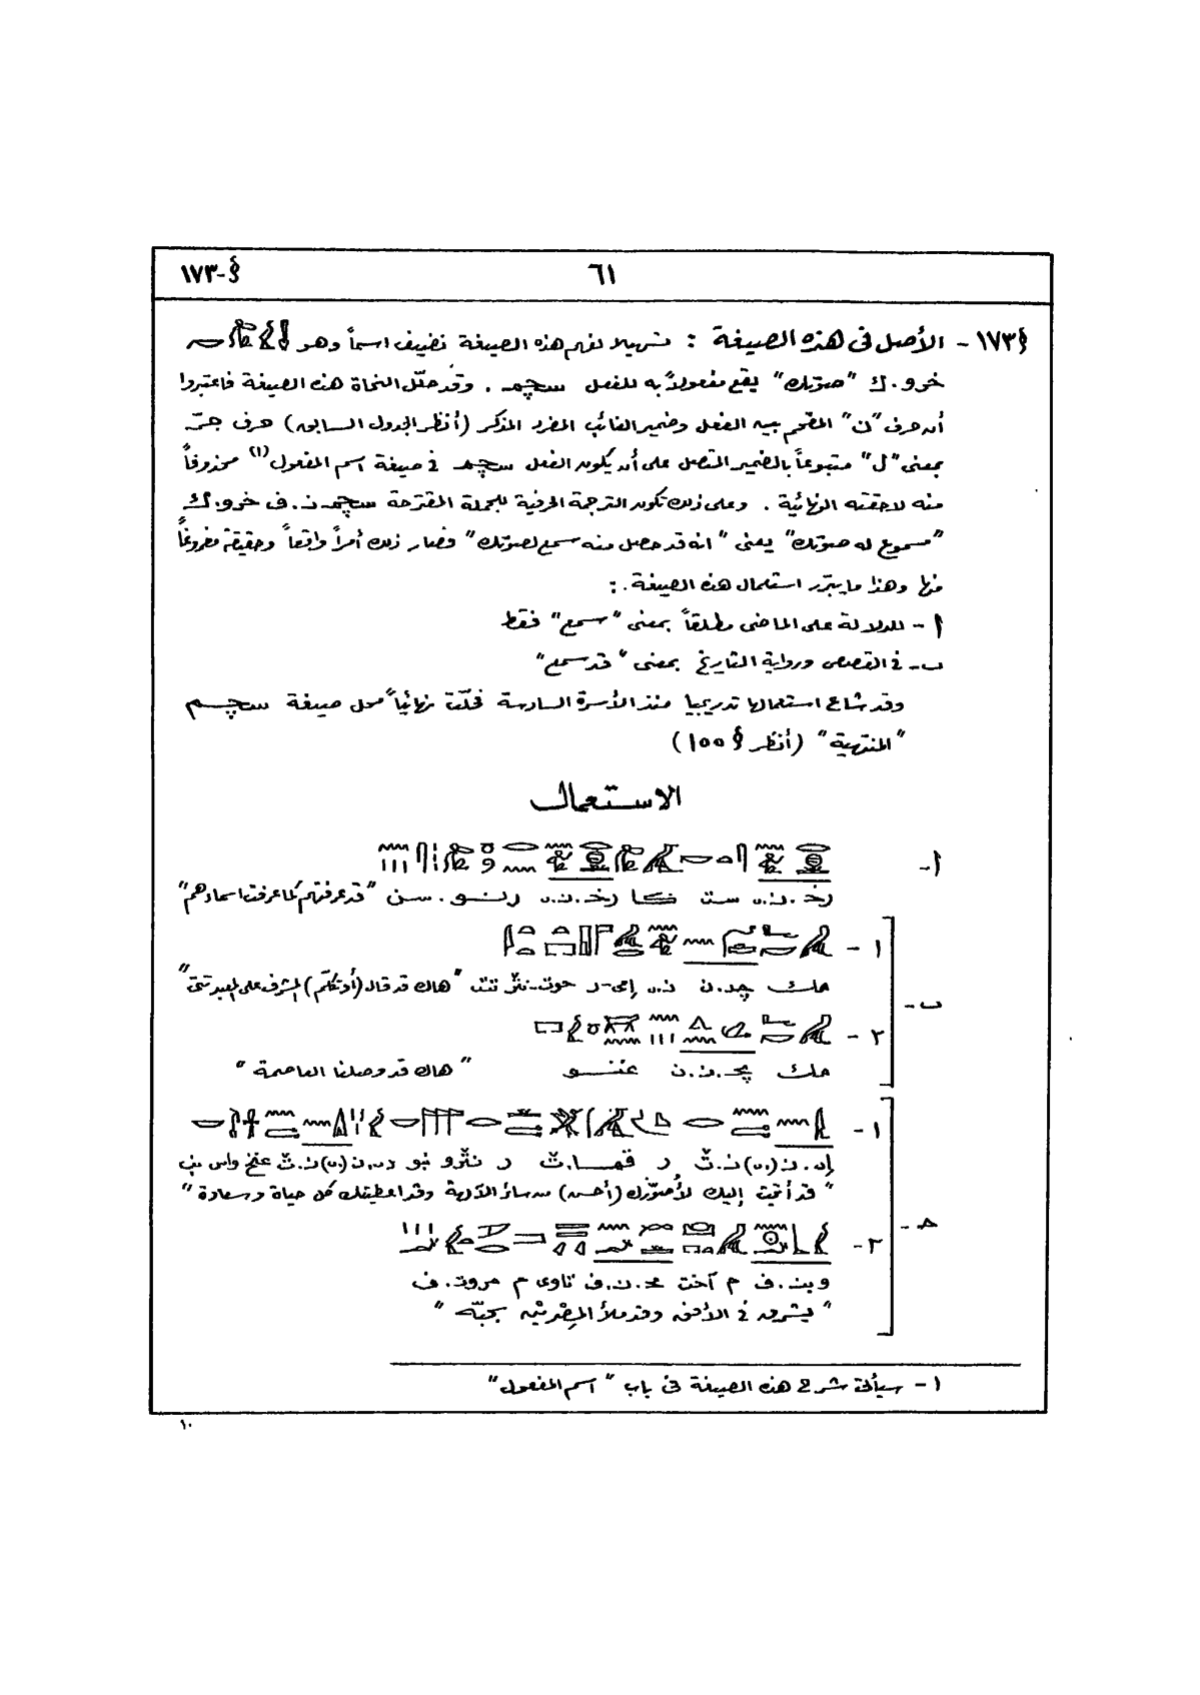 §-١٧٣
٦١
§١٧٣ - الأصل فى هذه الصيغة : تسهيلا لفهم هذه الصيغة نضيف اسماً وهو
خرو.ك "صوتك" يقع مفعولاً به للفعل سچم . وقد حلّل النحاة هذه الصيغة فاعتبروا
أن حرف "ن" المقحم بين الفعل وضمير الغائب المفرد المذكر (أنظر الجدول السابق) حرف جرّ
بمعنى "ل" متبوعاً بالضمير المتصل على أن يكون الفعل سچم فى صيغة اسم المفعول(١) محذوفاً
منه لاحقته النهائية . وعلى ذلك تكون الترجمة الحرفية للجملة المقترحة سچم.ن.ف خرو.ك
"مسموع له صوتك" يعنى "انه قد حصل منه سمع لصوتك" فصار ذلك أمراً واقعاً وحقيقة مفروغاً
منها وهذا ما يبرّر استعمال هذه الصيغة :
أ - للدلالة على الماضى مطلقاً بمعنى "سمع" فقط
ب - فى القصص ورواية التاريخ بمعنى "قد سمع"
وقد شاع استعمالها تدريجيا منذ الأسرة السادسة فحلّت نهائياً محل صيغة سچم
"المنتهية" (أنظر § ١٥٥)
الاستعمال
أ -
رخ.ن.ى ست رخ.ن.ى رنو.سن "قد عرفتهم كما عرفت اسماءهم"
ب -
١ -
مك چد.ن ن.ى إمى-ر حوت-نثر "هاك قد قال (أو تكلّم) المشرف على المعبد"
٢ -
مك پح.ن.ن خنو "هاك قد وصلنا العاصمة"
ح -
١ -
إى.ن(ى) ن.ث ر قما.ث ر نثرو نبو دى.ن(ى) ن.ث عنخ واس نب
"قد أتيت إليك لأصوّرك (أحسن) من سائر الآلهة وقد اعطيتك كل حياة وسعادة"
٢ -
وبن.ف م آخت مح.ن.ف تاوى م مروت.ف
"يشرق فى الأفق وقد ملأ المِصْرَيْن بحبّه"
١ - سيأتى شرح هذه الصيغة فى باب "اسم المفعول"
١٠